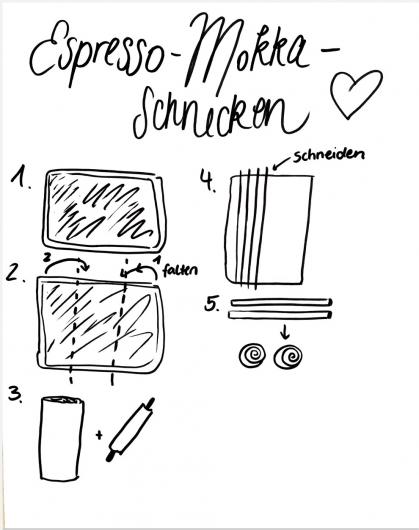 Espresso-Mokka-
Schnecken
1.
2.
2 1 falten
3.
+
4.
schneiden
5.